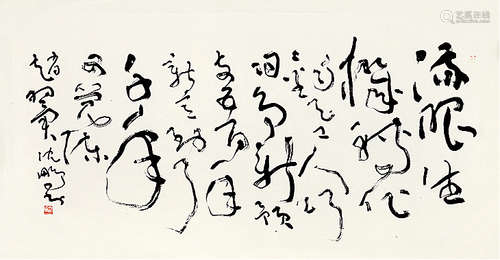 满眼生
机转化
钧天工人巧
日争新预
支五百年
新意到了
千年
又觉陈
赵翼沈鹏书
艺狐在线